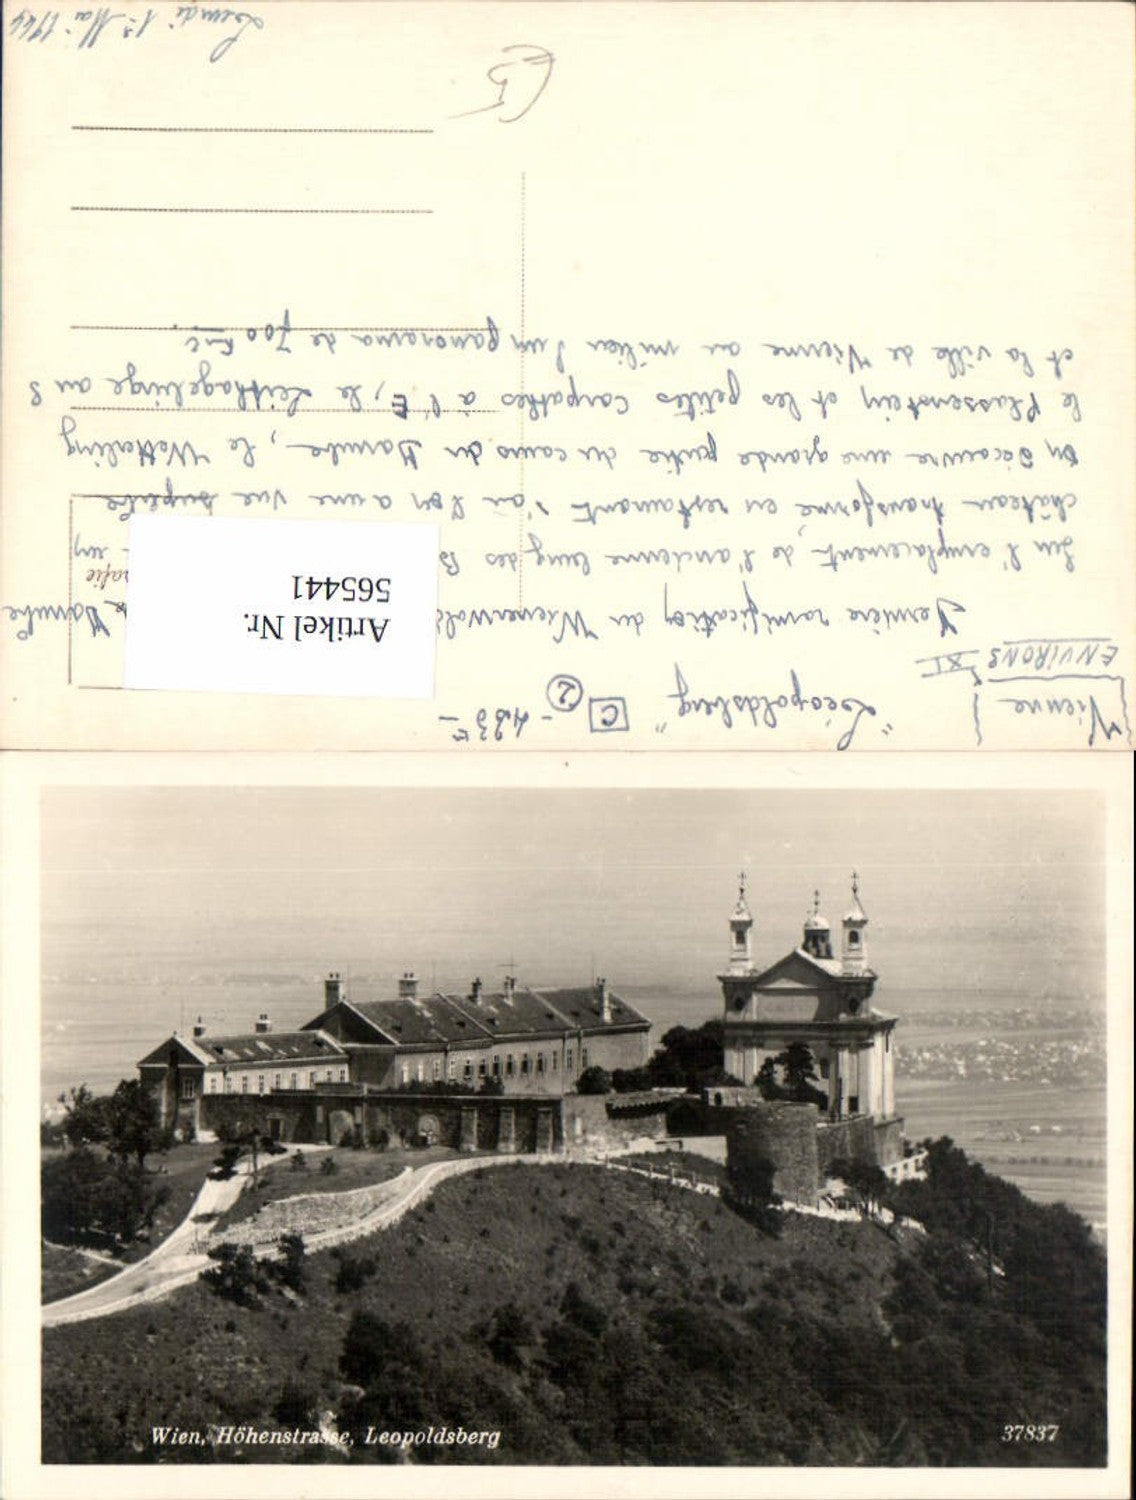 { Vienne } "Léopoldsberg" C - 2 - 433
ENVIRONS XI
Dernière ramification du Wienerwald Danube
Sur l'emplacement de l'ancienne burg des B un
château transformé en restaurant d'où l'on a une vue superbe
On découvre une grande partie du cours du Danube, le Wetterling
le Plassenstein et les petites Carpathes à l'E, le Leithagebirge au S
et la ville de Vienne au milieu d'un panorama de 700 km².
Lundi 1er Mai 1944
Artikel Nr.
565441
Wien, Höhenstrasse, Leopoldsberg
37837